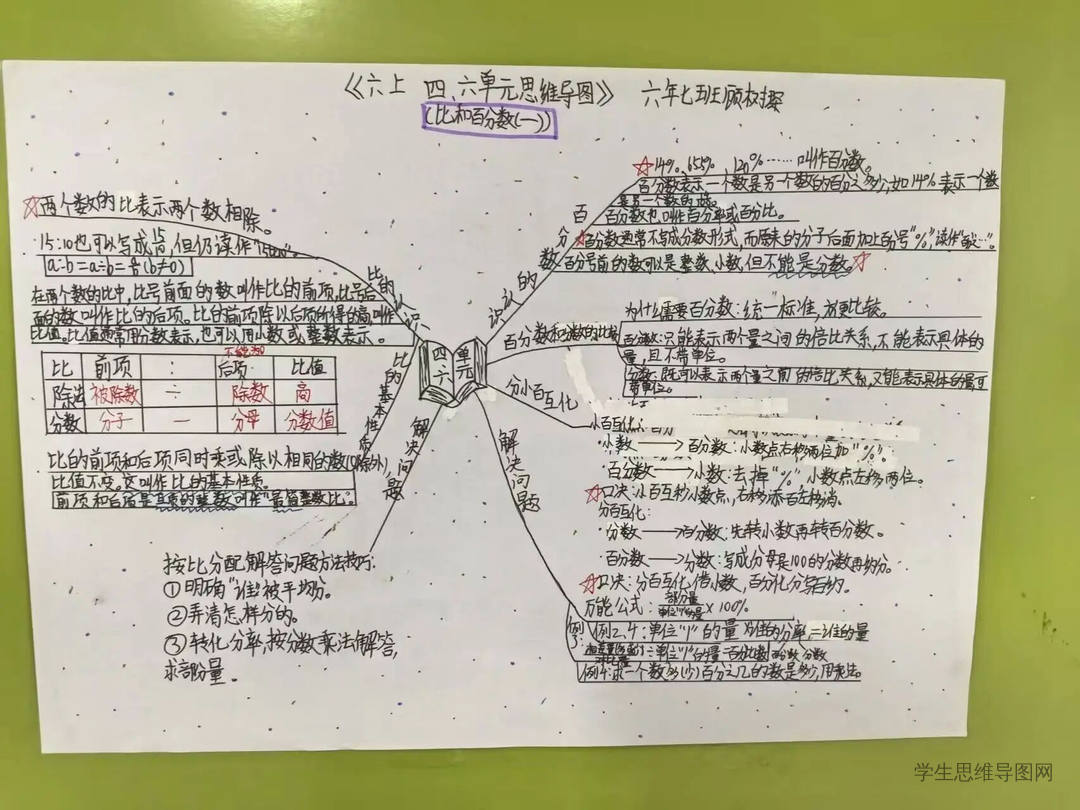 《六上 四、六单元思维导图》 六年七班
(比和百分数(一))
四六
单元
比的认识
☆两个数的比表示两个数相除。
15:10也可以写成15/10,但仍读作"15比10"。
a:b=a÷b=a/b(b≠0)
在两个数的比中,比号前面的数叫作比的前项,比号后
面的数叫作比的后项。比的前项除以后项所得的商叫作
比值。比值通常用分数表示,也可以用小数或整数表示。
不能为0
比 前项 : 后项 比值
除法 被除数 ÷ 除数 商
分数 分子 — 分母 分数值
比的基本性质
比的前项和后项同时乘或除以相同的数(0除外),
比值不变。这叫作比的基本性质。
前项和后项是互质的整数叫作"最简整数比"。
解决问题
按比分配解答问题方法技巧:
①明确"谁"被平均分。
②弄清怎样分的。
③转化分率,按分数乘法解答,
求部分量。
百分数的认识
☆14%、65.5%、120%……叫作百分数。
百分数表示一个数是另一个数的百分之多少,如14%表示一个数
是另一个数的
百分数也叫作百分率或百分比。
☆百分数通常不写成分数形式,而原来的分子后面加上百分号"%",读作"百分之…"。
百分号前的数可以是整数、小数,但不能是分数。☆
百分数和分数的比较
为什么需要百分数:统一标准,方便比较。
百分数:只能表示两个量之间的倍比关系,不能表示具体的
量,且不带单位。
分数:既可以表示两个量之间的倍比关系,又能表示具体的量可
带单位。
分小百互化
小百互化:
·小数——>百分数:小数点右移两位加"%"。
·百分数——>小数:去掉"%"小数点左移两位。
☆口决:小百互移小数点,右移添百左移消。
分百互化:
·分数——>百分数:先转小数再转百分数。
·百分数——>分数:写成分母是100的分数再约分。
☆口决:分百互化借小数,百分化分
解决问题
万能公式:部分量/单位"1"的量×100%
例2、4:单位"1"的量 为谁的分率=谁的量
÷单位"1"的量=百分比
例4:求一个数多(少)百分之几的数是多少,用乘法。
学生思维导图网